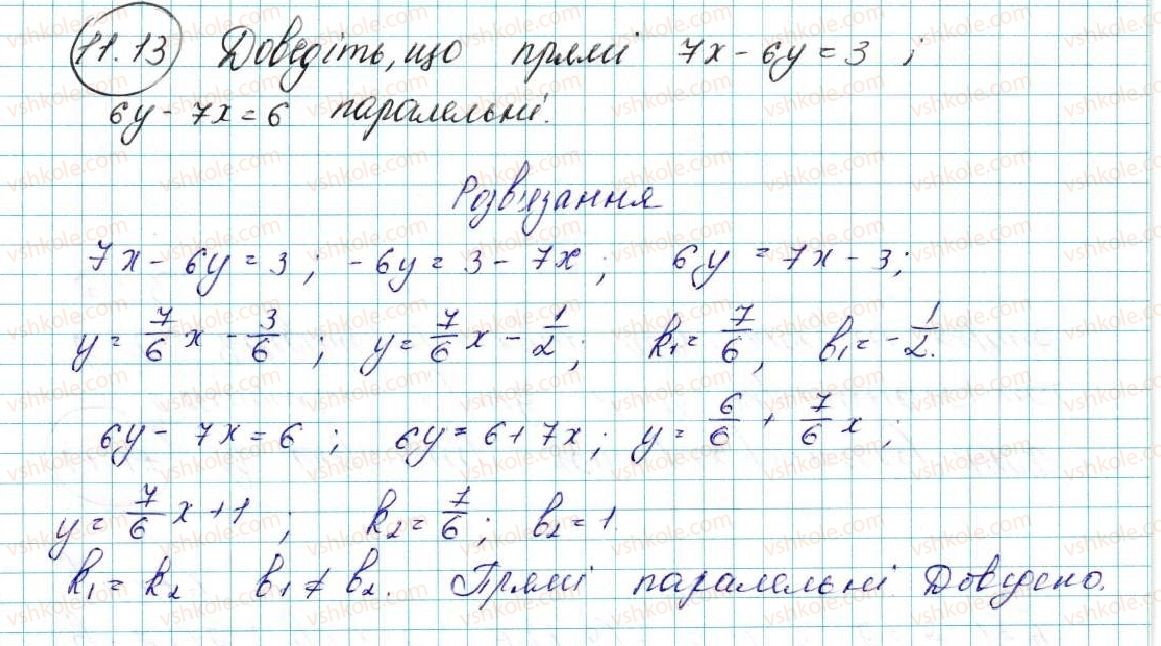 11.13 Доведіть, що прямі 7x - 6y = 3 ;
6y - 7x = 6 паралельні.
Розв'язання
7x - 6y = 3 ; -6y = 3 - 7x ; 6y = 7x - 3 ;
y = 7/6 x - 3/6 ; y = 7/6 x - 1/2 ; k₁ = 7/6 , b₁ = - 1/2 .
6y - 7x = 6 ; 6y = 6 + 7x ; y = 6/6 + 7/6 x ;
y = 7/6 x + 1 ; k₂ = 7/6 ; b₂ = 1.
k₁ = k₂ b₁ ≠ b₂. Прямі паралельні. Доведено.
vshkole.com